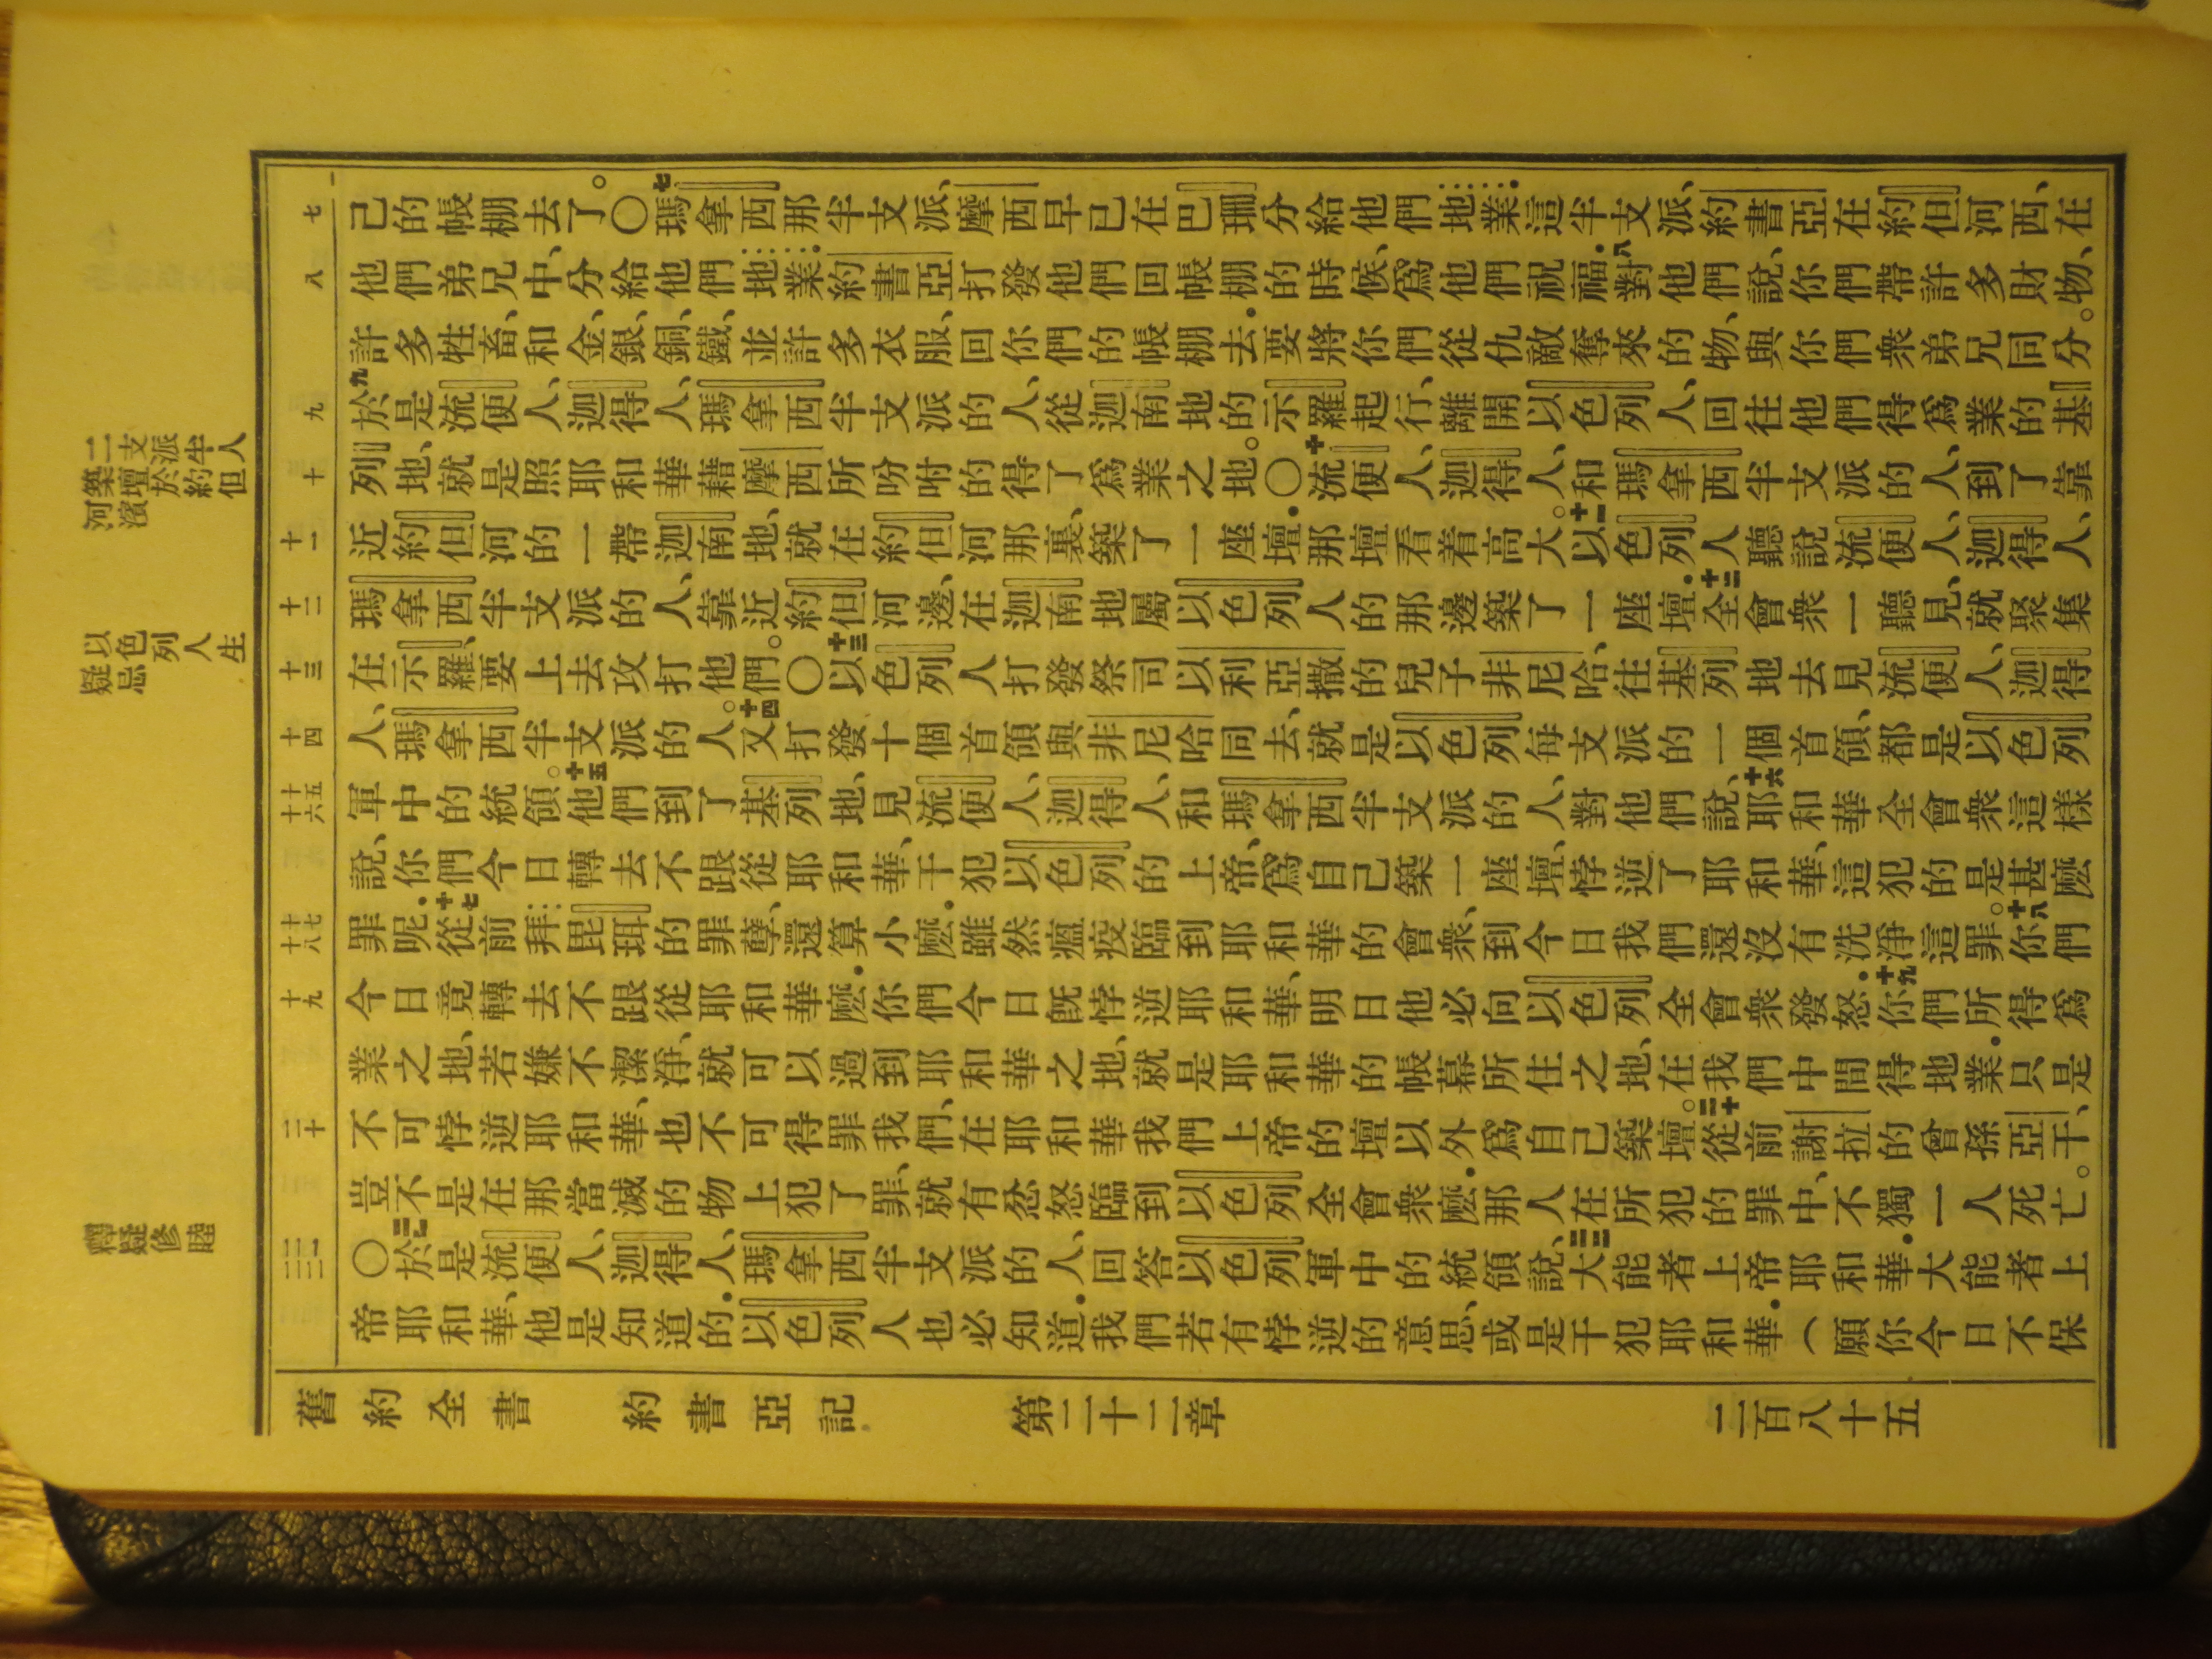 己的帳棚去了。〇七瑪拿西那半支派、摩西早已在巴珊分給他們地業．這半支派、約書亞在約但河西、在
他們弟兄中、分給他們地業．約書亞打發他們回帳棚的時候、爲他們祝福．八對他們說、你們帶許多財物、
許多牲畜、和金、銀、銅、鐵、並許多衣服、回你們的帳棚去．要將你們從仇敵奪來的物、與你們衆弟兄同分。
九於是流便人、迦得人、瑪拿西半支派的人、從迦南地的示羅起行、離開以色列人、回往他們得爲業的基
列地、就是照耶和華藉摩西所吩咐的得了爲業之地。〇十流便人、迦得人、和瑪拿西半支派的人、到了靠
近約但河的一帶迦南地、就在約但河那裏、築了一座壇．那壇看着高大。十一以色列人聽說流便人、迦得人、
瑪拿西半支派的人、靠近約但河邊、在迦南地屬以色列人的那邊築了一座壇．十二全會衆一聽見、就聚集
在示羅、要上去攻打他們。〇十三以色列人打發祭司以利亞撒的兒子非尼哈、往基列地去見流便人、迦得
人、瑪拿西半支派的人。十四又打發十個首領與非尼哈同去、就是以色列每支派的一個首領、都是以色列
軍中的統領。十五他們到了基列地、見流便人、迦得人、和瑪拿西半支派的人、對他們說、十六耶和華全會衆這樣
說、你們今日轉去不跟從耶和華、干犯以色列的上帝、爲自己築一座壇、悖逆了耶和華、這犯的是甚麽
罪呢．十七從前拜毘珥的罪孽、還算小麽．雖然瘟疫臨到耶和華的會衆、到今日我們還沒有洗淨這罪。十八你們
今日竟轉去不跟從耶和華麽．你們今日旣悖逆耶和華、明日他必向以色列全會衆發怒．十九你們所得爲
業之地、若嫌不潔淨、就可以過到耶和華之地、就是耶和華的帳幕所住之地、在我們中間得地業．只是
不可悖逆耶和華、也不可得罪我們、在耶和華我們上帝的壇以外爲自己築壇。二十從前謝拉的曾孫亞干、
豈不是在那當滅的物上犯了罪、就有忿怒臨到以色列全會衆麽．那人在所犯的罪中、不獨一人死亡。
〇二一於是流便人、迦得人、瑪拿西半支派的人、回答以色列軍中的統領說、二二大能者上帝耶和華．大能者上
帝耶和華、他是知道的．以色列人也必知道．我們若有悖逆的意思、或是干犯耶和華．（願你今日不保
七
八
九
十
十一
十二
十三
十四
十五
十六
十七
十八
十九
二十
二一
二二
二支派半人
築壇於約但
河濱
以色列人生
疑忌
釋疑修睦
舊約全書　約書亞記　第二十二章　二百八十五